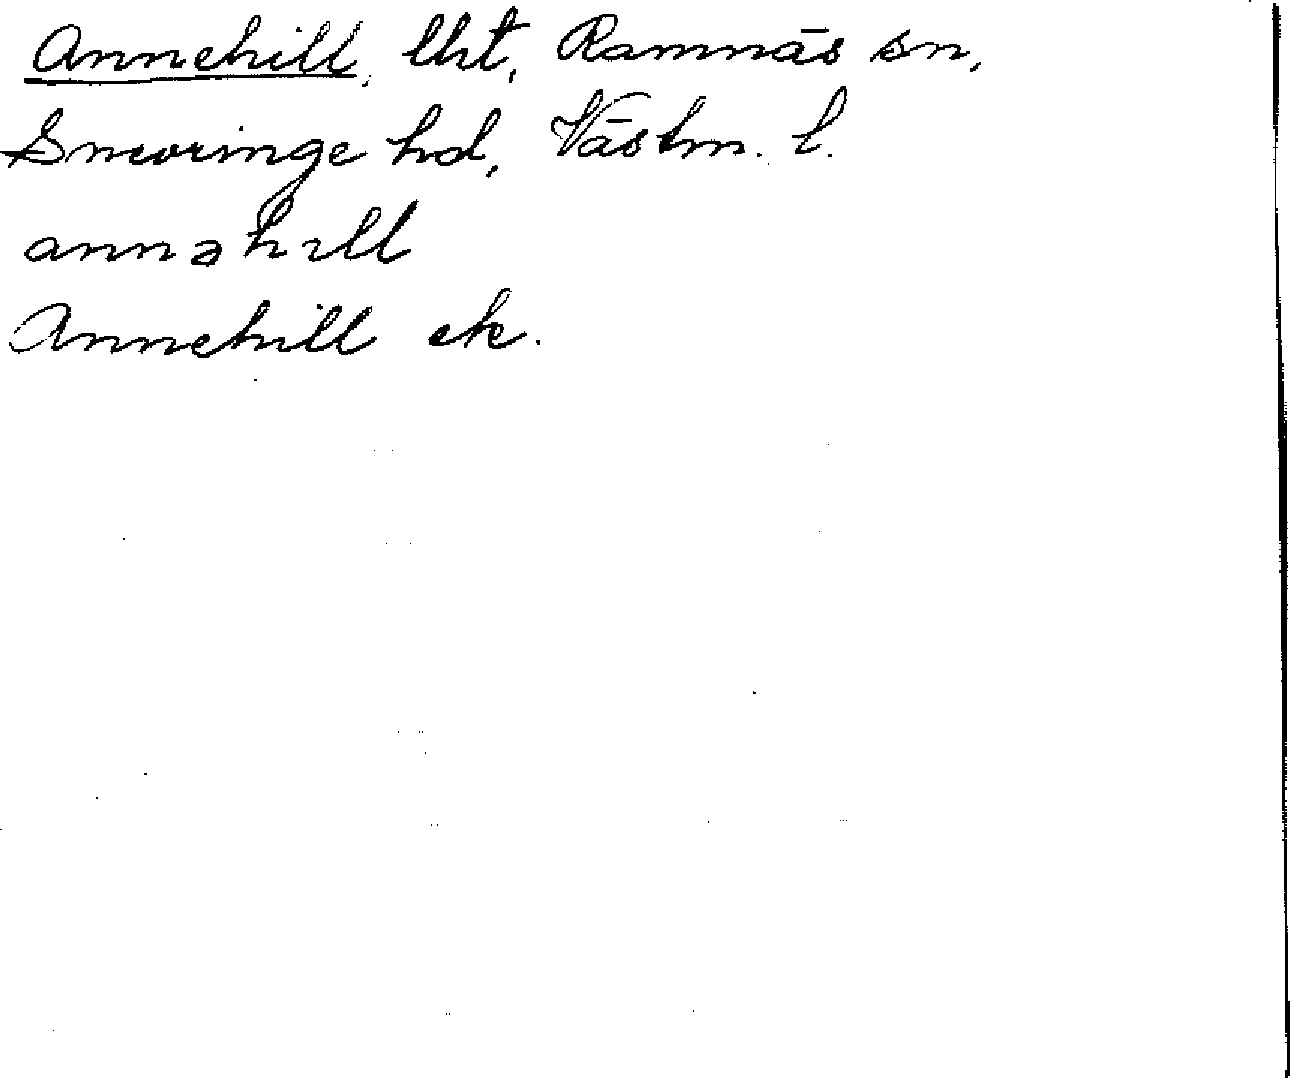 Annehill, lht, Ramnäs sn,
Snevringe hd, Västm. l.
annəhıll
Annehill ek.